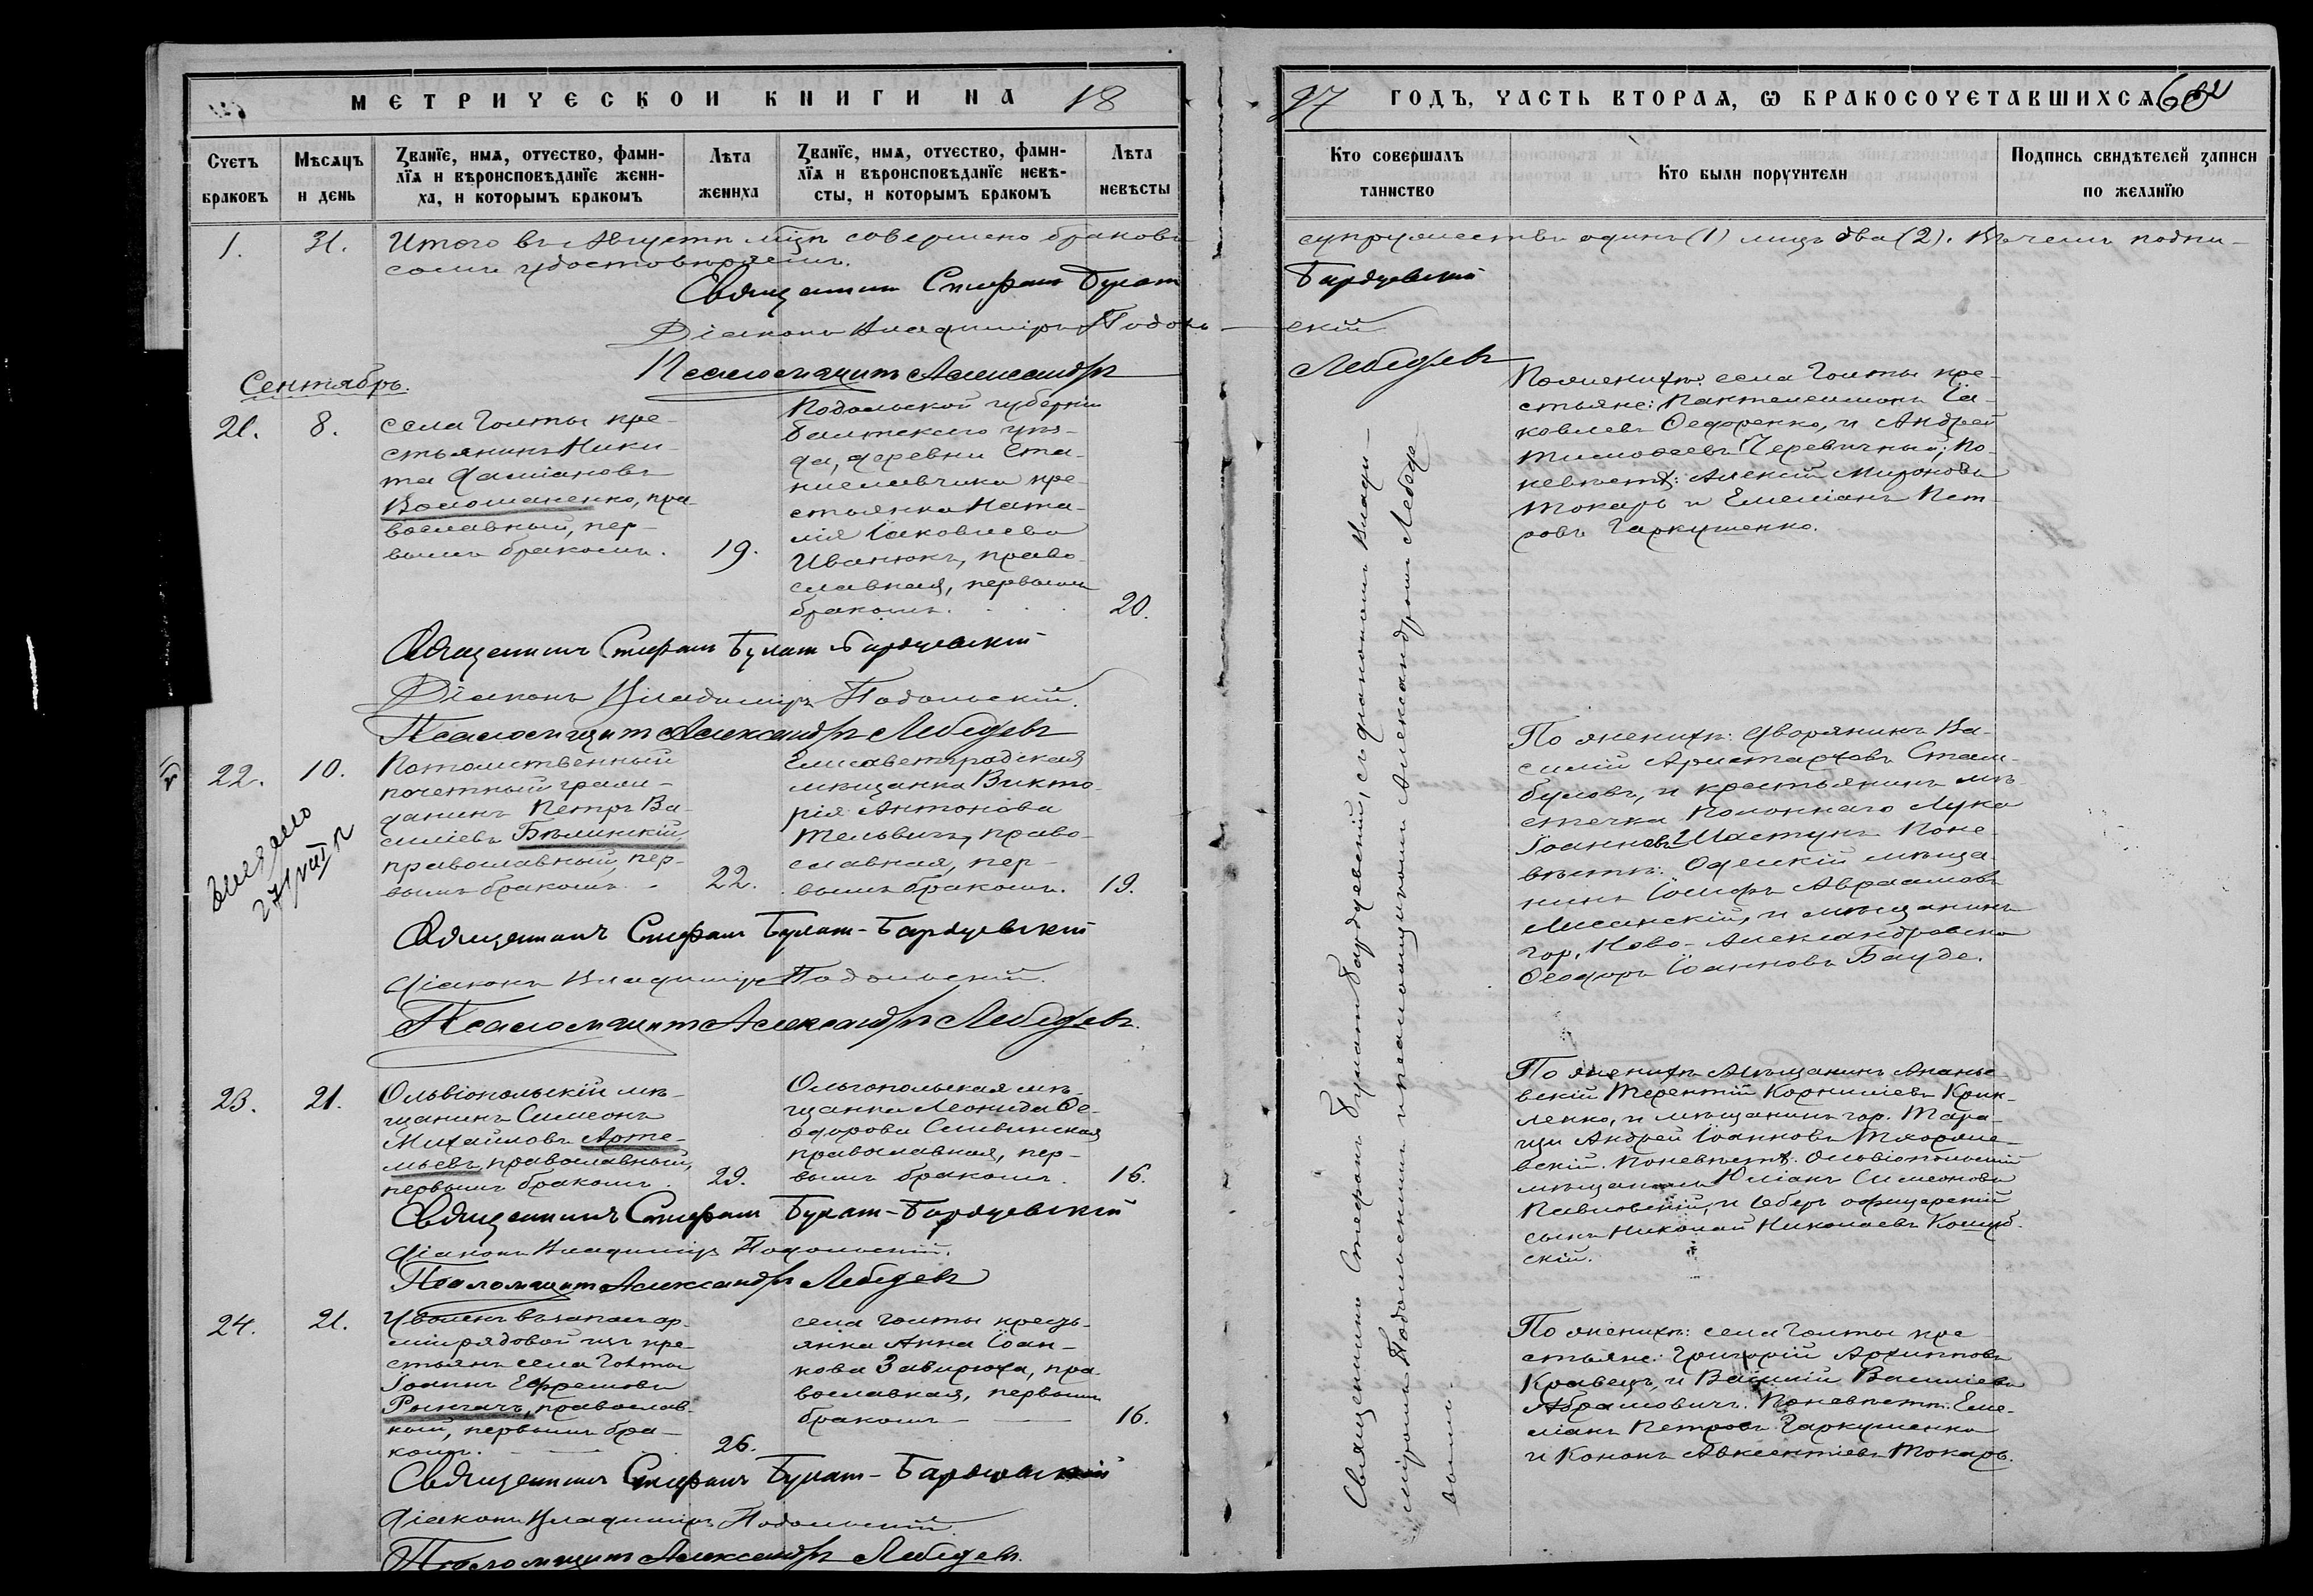 МЕТРИЧЕСКОЙ КНИГИ НА 18
97 ГОДЪ, ЧАСТЬ ВТОРАЯ, Ѡ БРАКОСОЧЕТАВШИХСЯ
Счетъ браковъ
Мѣсяцъ и день
Званїе, имя, отчество, фами-
лїя и вѣроисповѣданїе жени-
ха, и которымъ бракомъ
Лѣта жениха
Званїе, имя, отчество, фами-
лїя и вѣроисповѣданїе невѣ-
сты, и которымъ бракомъ
Лѣта невѣсты
Кто совершалъ
таинство
Кто были поручители
Подпись свидѣтелей записи
по желанїю
1. 31. Итого въ Августѣ мцѣ совершено браковъ
супружествъ одинъ (1) лицъ два (2). Въ чемъ подпи-
семъ удостовѣряемъ.
Священникъ Стефанъ Булат Бардуевскій
Діаконъ Владиміръ Подоль- скій
Псаломщикъ Александръ Лебедевъ
Сентябрь.
21. 8.
Села Голты кре-
стьянинъ Ники-
та Даміановъ
Воломаненко, пра-
вославный, пер-
вымъ бракомъ. 19.
Подольской губерніи
Балтскаго уѣз-
да, деревни Ста-
ниславчика кре-
стьянка Ната-
лія Іаковлева
Иванюкъ, право-
славная, первымъ
бракомъ. 20.
По женихѣ: села Голты кре-
стьяне: Пантелеимонъ Іа-
ковлевъ Ѳедоренко, и Андрей
Тимоѳеевъ Черевичный; По
невѣстѣ: Алексій Мироновъ
Токарь и Емеліанъ Пет-
ровъ Гаркушенко.
Священникъ Стефанъ Булат-Бардуевскій
Діаконъ Владиміръ Подольскій.
Псаломщикъ Александръ Лебедевъ
22. 10.
Потомственный
почетный граж-
данинъ Петръ Ва-
силіевъ Бѣлинскій,
православный, пер-
вымъ бракомъ. 22.
Елисаветградская
мѣщанка Викто-
рія Антонова
Тельвихъ, право-
славная, пер-
вымъ бракомъ. 19.
По женихѣ: дворянинъ Ва-
силій Аристарховъ Стам-
буловъ, и крестьянинъ мѣ-
стечка Полоннаго Лука
Іоанновъ Шастунъ. По не-
вѣстѣ: Одесскій мѣща-
нинъ Іосифъ Авраамовъ
Лисинскій, и мѣщанинъ
гор. Ново-Александровска
Ѳеодоръ Іоанновъ Бауде.
Священникъ Стефанъ Булат-Бардуевскій
Діаконъ Владиміръ Подольскій.
Псаломщикъ Александръ Лебедевъ.
23. 21.
Ольвіопольскій мѣ-
щанинъ Симеонъ
Михаиловъ Арте-
мьевъ, православный,
первымъ бракомъ. 29.
Ольгопольская мѣ-
щанка Леонида Ѳе-
одорова Сливинская
православная, пер-
вымъ бракомъ. 16.
По женихѣ Мѣщанинъ Ананье-
вскій Терентій Корниліевъ Крик-
ленко, и мѣщанинъ гор. Тара-
щи Андрей Іоанновъ
вскій. По невѣстѣ: Ольвіопольскій
мѣщанинъ Юліанъ Симеоновъ
Павловскій, и Оберъ офицерскій
сынъ Николай Николаевъ
скій.
Священникъ Стефанъ Булат-Бардуевскій
Діаконъ Владиміръ Подольскій.
Псаломщикъ Александръ Лебедевъ
24. 21.
Уволенъ въ запасъ ар-
міи рядовой изъ кре-
стьянъ села Голты
Іоаннъ Ефремовъ
Рынгачъ, православ-
ный, первымъ бра-
комъ. 26.
села Голты кресть-
янка Анна Іоан-
нова Завирюха, пра-
вославная, первымъ
бракомъ 16.
По женихѣ: села Голты кре-
стьяне: Григорій Архиповъ
Кравецъ, и Василій Василіевъ
Абрамовичъ. По невѣстѣ: Еме-
ліанъ Петровъ Гаркушенко
и Кононъ Авксентіевъ Токарь.
Священникъ Стефанъ Булат-Бардуевскій
Діаконъ Владиміръ Подольскій.
Псаломщикъ Александръ Лебедевъ.
Священникъ Стефанъ Булатъ Бардуевскій, съ діакономъ Влади-
міромъ Подольскимъ и псаломщикомъ Александромъ Лебеде-
вымъ.